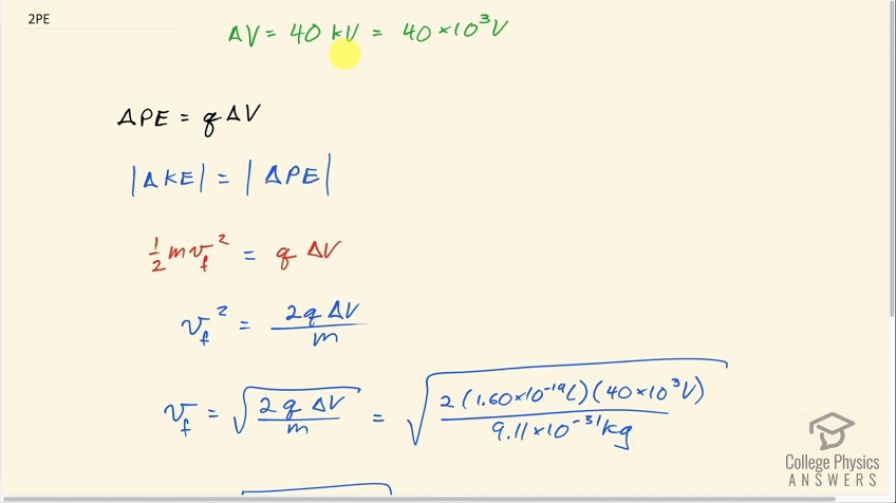 2PE
ΔV = 40 kV = 40×10³V
ΔPE = qΔV
|ΔKE| = |ΔPE|
½mv_f² = q ΔV
v_f² = 2qΔV/m
v_f = √(2qΔV/m) = √(2(1.60×10⁻¹⁹C)(40×10³V)/9.11×10⁻³¹kg)
College Physics
ANSWERS